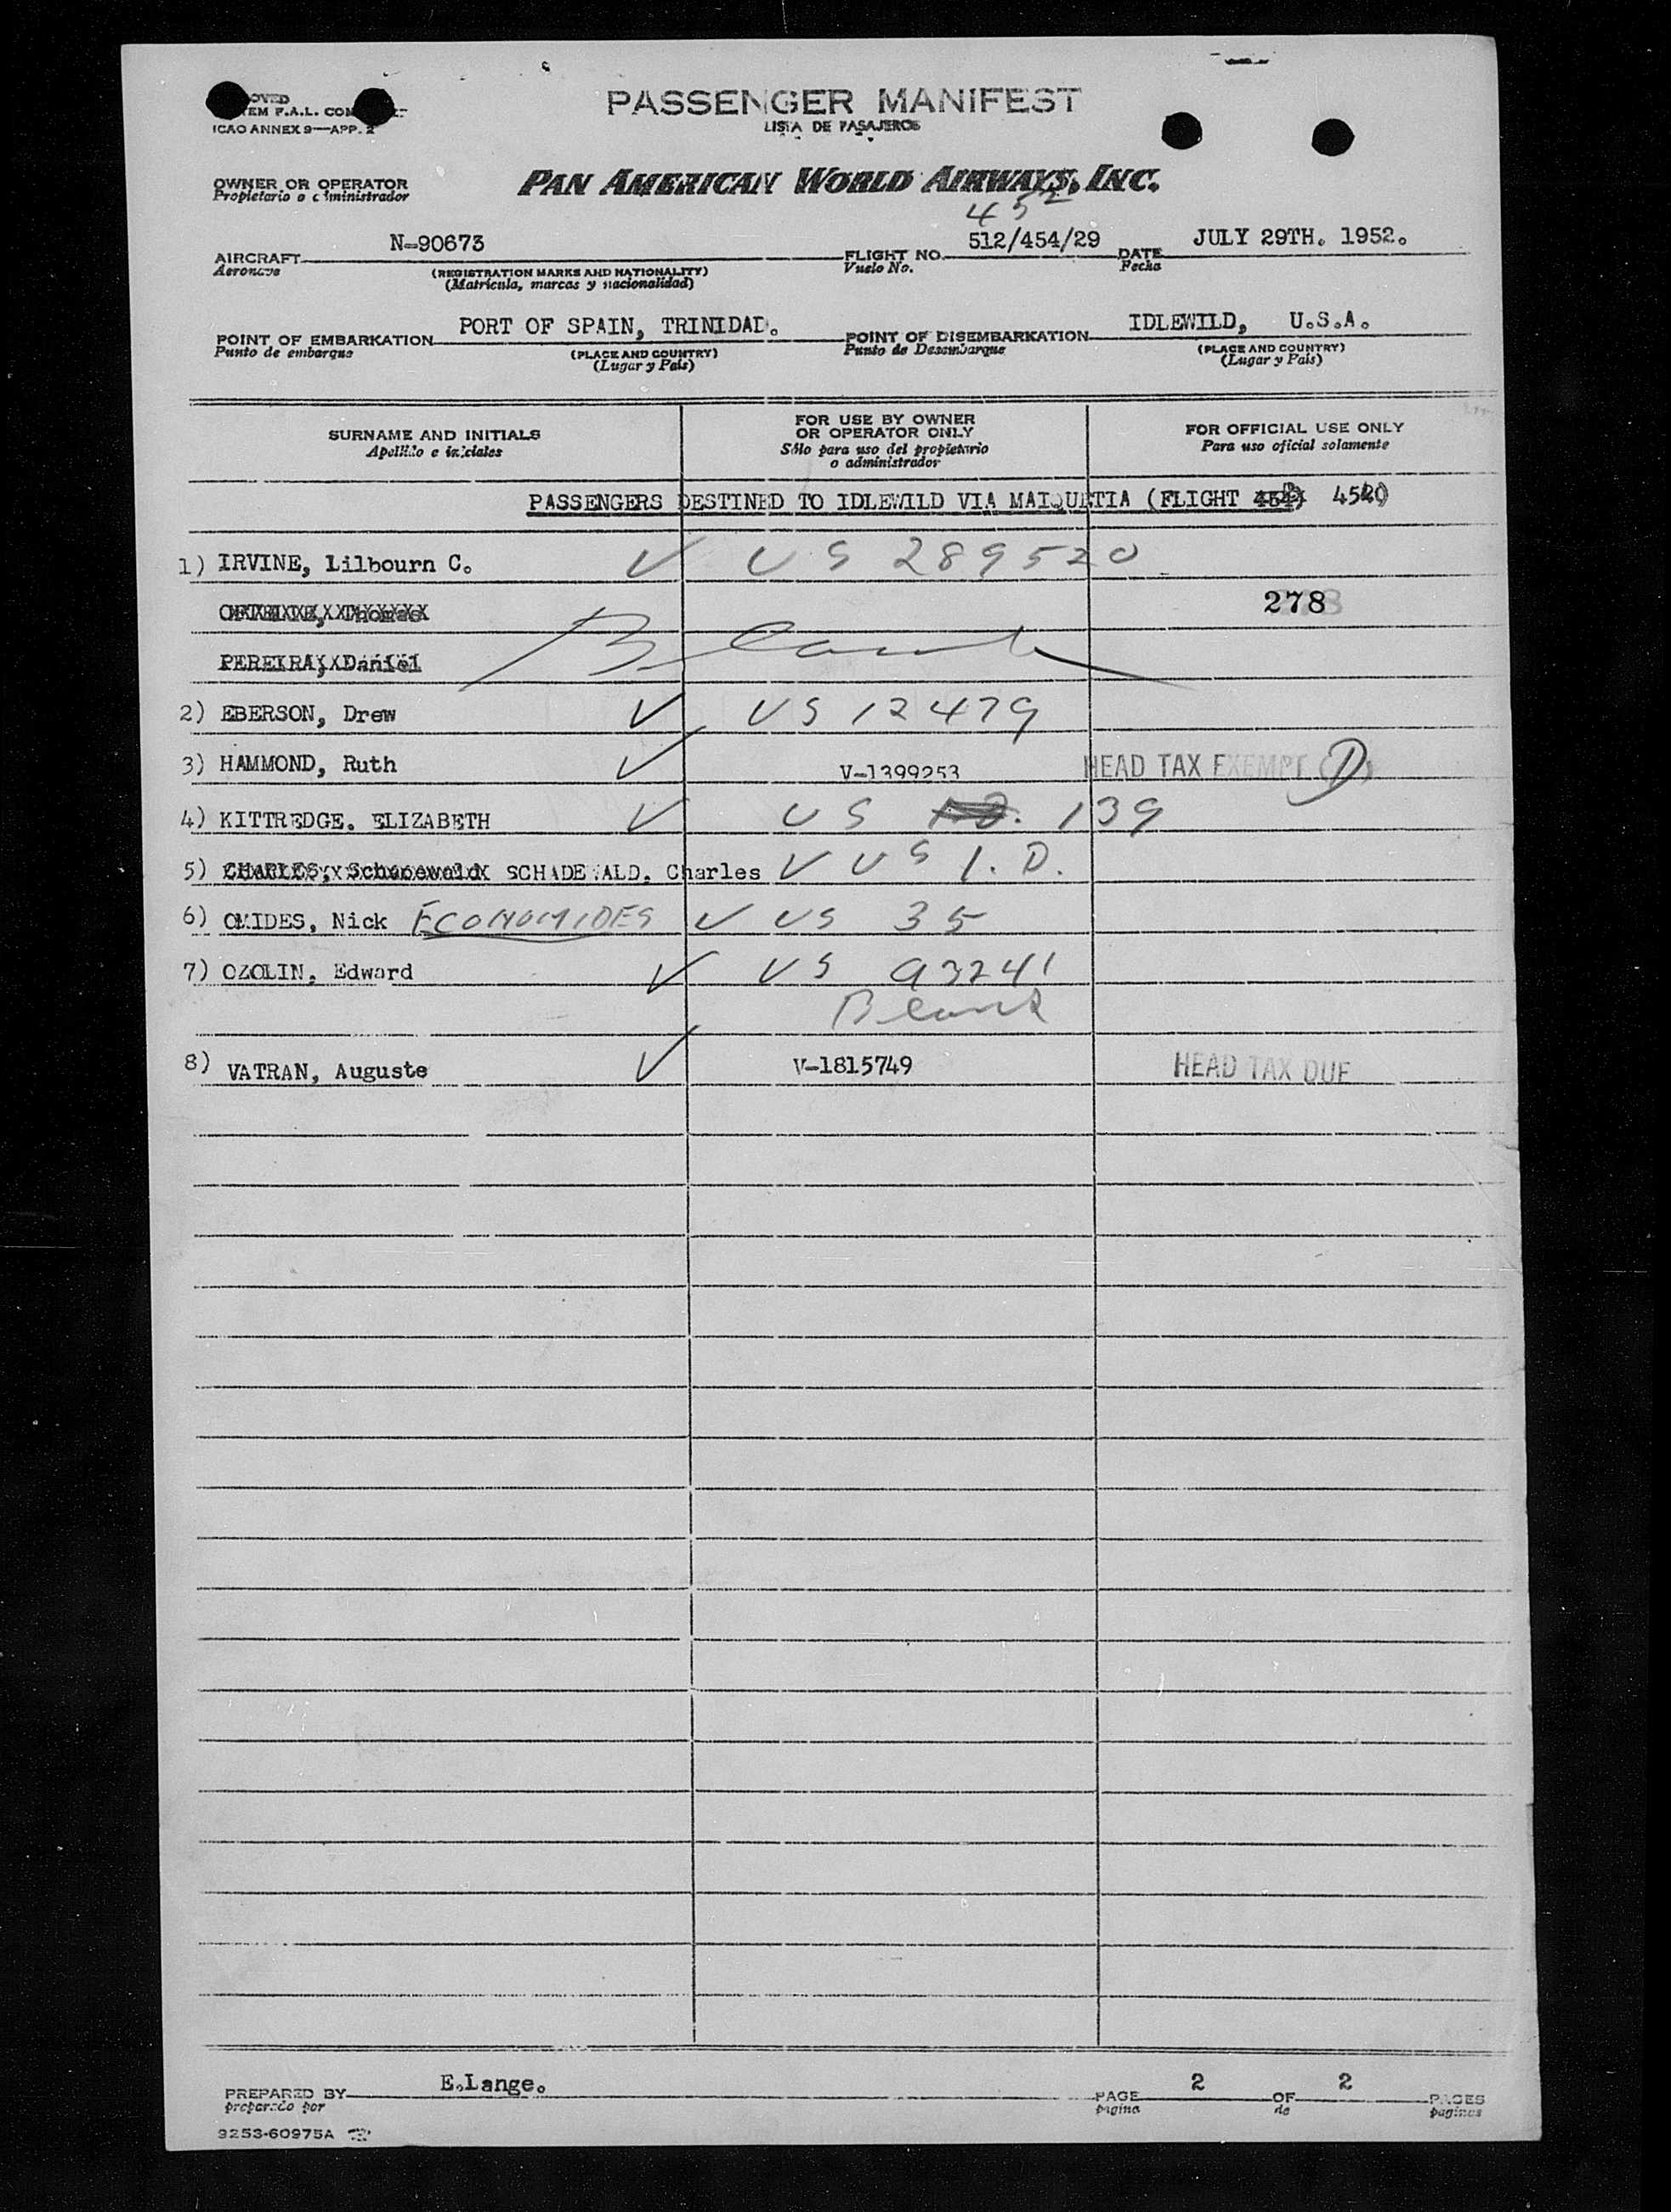 PASSENGER MANIFEST
LISTA DE PASAJEROS
ICAO ANNEX 9—APP. 2
OWNER OR OPERATOR
Propietario o administrador
PAN AMERICAN WORLD AIRWAYS, INC.
452
AIRCRAFT N-90673 FLIGHT NO. 512/454/29 DATE JULY 29TH. 1952.
Aeronave Vuelo No. Fecha
(REGISTRATION MARKS AND NATIONALITY)
(Matrícula, marcas y nacionalidad)
POINT OF EMBARKATION PORT OF SPAIN, TRINIDAD. POINT OF DISEMBARKATION IDLEWILD, U.S.A.
Punto de embarque Punto de Desembarque
(PLACE AND COUNTRY) (PLACE AND COUNTRY)
(Lugar y País) (Lugar y País)
SURNAME AND INITIALS FOR USE BY OWNER OR OPERATOR ONLY FOR OFFICIAL USE ONLY
Apellido e iniciales Sólo para uso del propietario o administrador Para uso oficial solamente
PASSENGERS DESTINED TO IDLEWILD VIA MAIQUETIA (FLIGHT
1) IRVINE, Lilbourn C. V US 289520
278
PEREIRA, Daniel Blank
2) EBERSON, Drew V US 12479
3) HAMMOND, Ruth V V-1399253 HEAD TAX EXEMPT (D)
4) KITTREDGE. ELIZABETH V US 139
5) CHARLES, Schadewald SCHADEWALD. Charles V US I.D.
6) OMIDES, Nick ECONOMIDES V US 35
7) OZOLIN, Edward V US 93241
Blank
8) VATRAN, Auguste V V-1815749 HEAD TAX DUE
PREPARED BY E.Lange. PAGE 2 OF 2 PAGES
preparado por página de páginas
9253-60975A